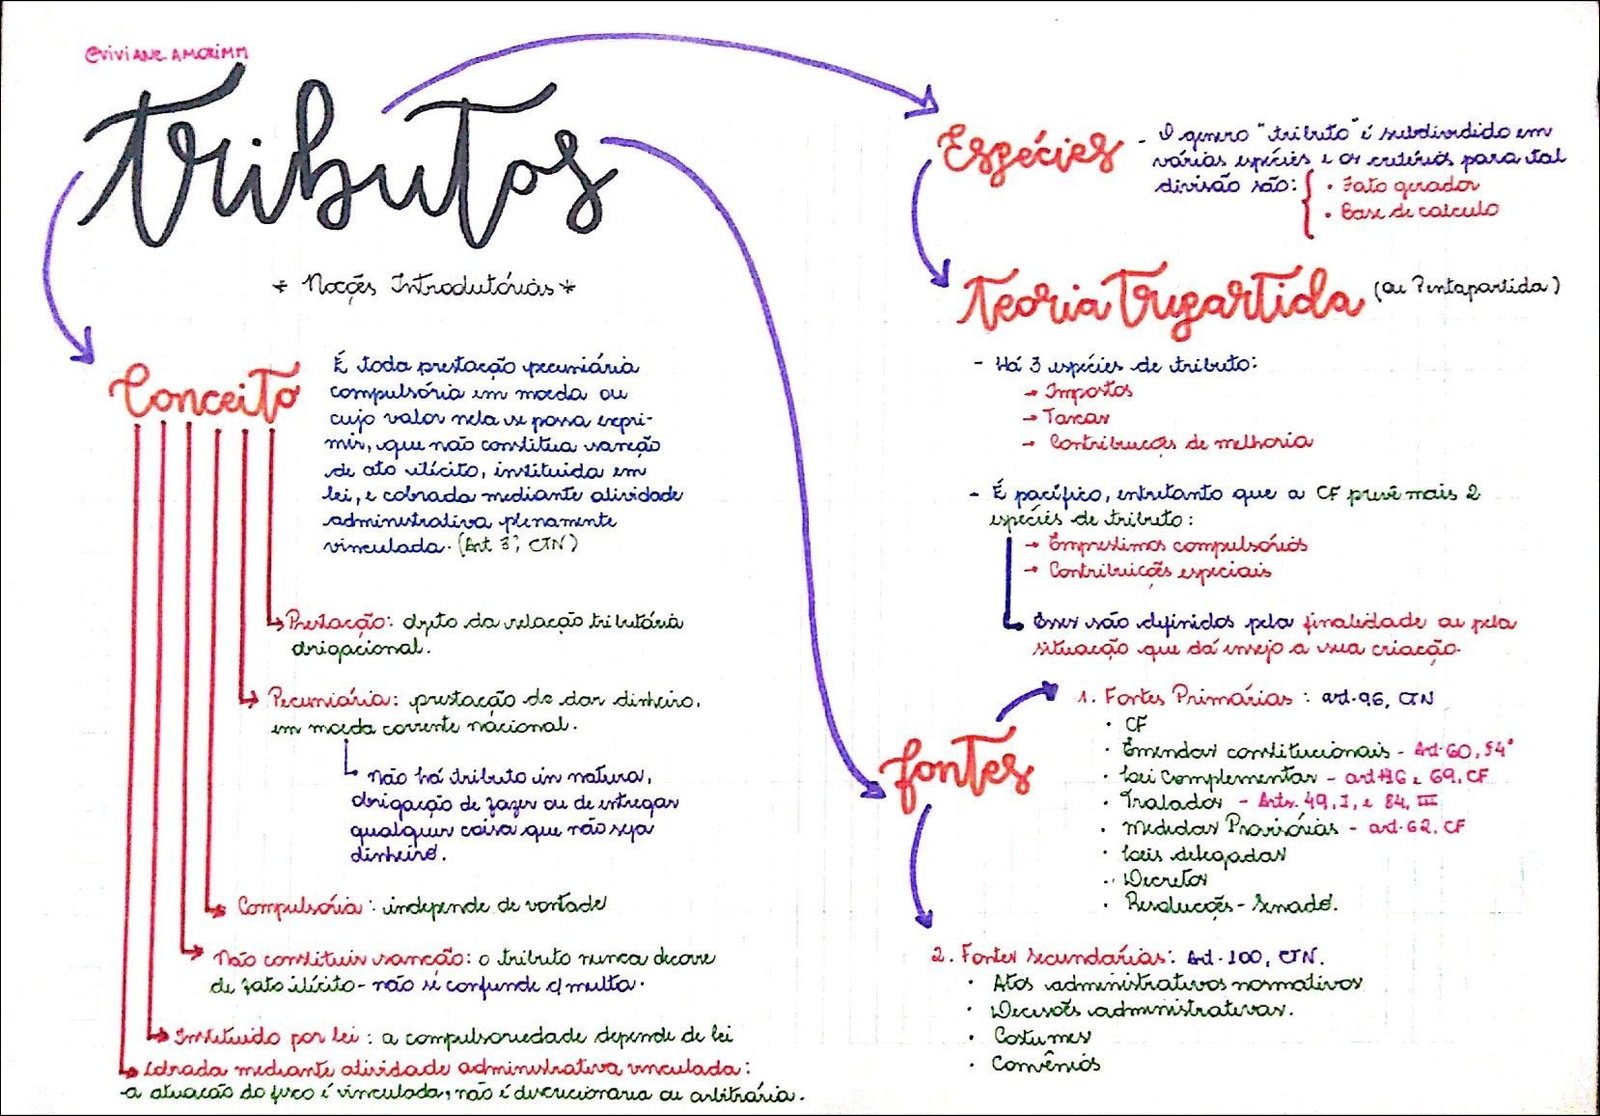 @viviane.amorimm
Tributos
* Noções Introdutórias *
Conceito
É toda prestação pecuniária
compulsória em moeda ou
cujo valor nela se possa expri-
mir, que não constitua sanção
de ato ilícito, instituída em
lei, e cobrada mediante atividade
administrativa plenamente
vinculada. (Art 3º, CTN)
Prestação: objeto da relação tributária
obrigacional.
Pecuniária: prestação de dar dinheiro,
em moeda corrente nacional.
Não há tributo in natura,
obrigação de fazer ou de entregar
qualquer coisa que não seja
dinheiro.
Compulsória: independe de vontade
Não constituir sanção: o tributo nunca decorre
de fato ilícito - não se confunde c/ multa.
Instituído por lei: a compulsoriedade depende de lei
Cobrada mediante atividade administrativa vinculada:
a atuação do fisco é vinculada, não é discricionária ou arbitrária.
Espécies - O genero "tributo" é subdividido em
várias espécies e os critérios para tal
divisão são:
• Fato gerador
• Base de calculo
Teoria Tripartida (ou Pentapartida)
- Há 3 espécies de tributo:
→ Impostos
→ Taxas
→ Contribuições de melhoria
- É pacífico, entretanto que a CF prevê mais 2
espécies de tributo:
→ Emprestimos compulsórios
→ Contribuições especiais
Esses são definidos pela finalidade ou pela
situação que dá ensejo a sua criação.
Fontes
1. Fontes Primárias: art. 96, CTN
• CF
• Emendas constitucionais - Art. 60, §4º
• Lei Complementar - art 146 e 69, CF
• Tratados - Arts. 49, I, e 84, III
• Medidas Provisórias - art. 62, CF
• Leis delegadas
• Decretos
• Resoluções - Senado.
2. Fontes secundárias: Art. 100, CTN.
• Atos administrativos normativos
• Decisões administrativas.
• Costumes
• Convênios